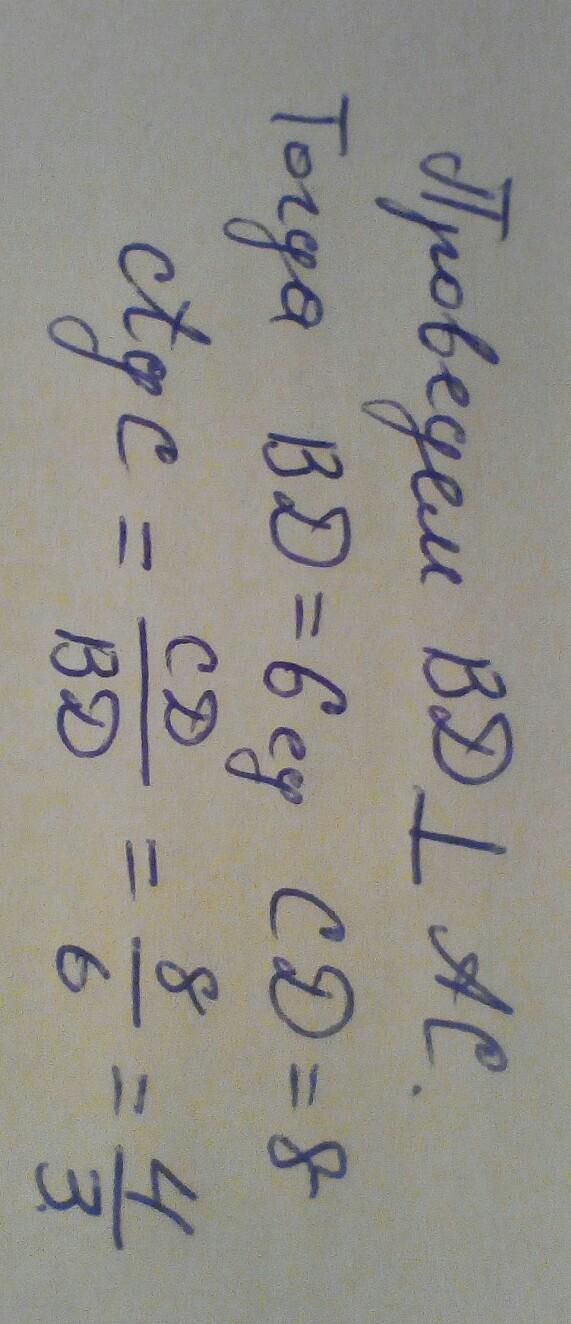 Проведем BD ⊥ AC.
Тогда BD = 6 ед CD = 8
ctg C = CD/BD = 8/6 = 4/3